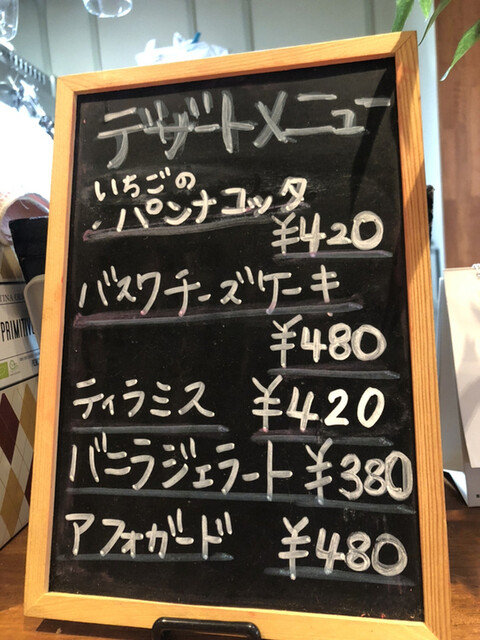 デザートメニュー
いちごの
パンナコッタ
¥420
バスクチーズケーキ
¥480
ティラミス ¥420
バニラジェラート ¥380
アフォガード ¥480
PRIMITIV